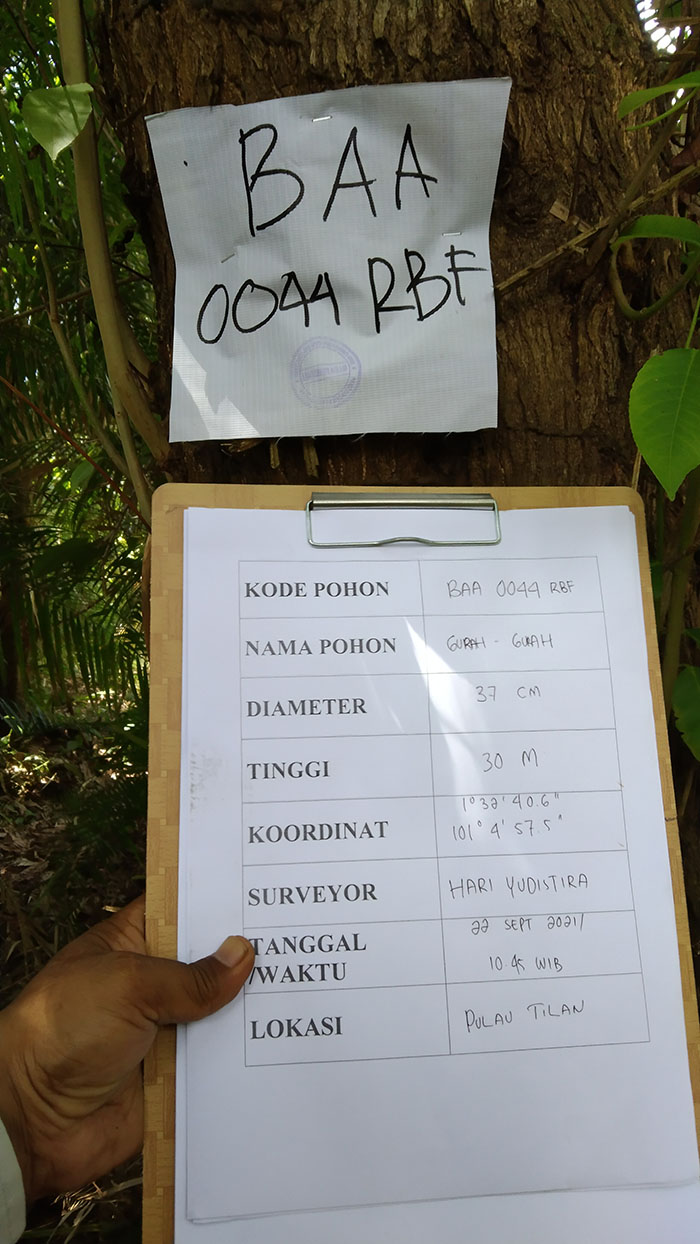 BAA
0044 RBF
KODE POHON BAA 0044 RBF
NAMA POHON GURAH - GURAH
DIAMETER 37 CM
TINGGI 30 M
KOORDINAT 1° 32' 40.6"
101° 4' 57.5"
SURVEYOR HARI YUDISTIRA
TANGGAL 22 SEPT 2021/
/WAKTU 10.45 WIB
LOKASI PULAU TILAN